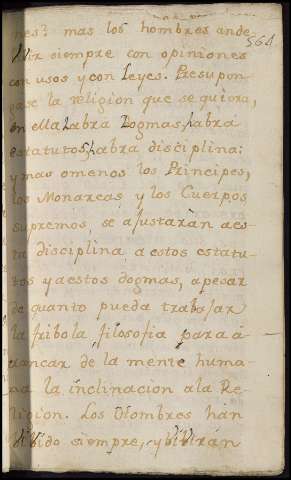 nes? mas los hombres ande
564
Vivir siempre con opiniones
con usos y con Leyes. Presupon
gase la religion que se quiera,
en ella habra Dogmas, habra
estatutos, habra disciplina:
y mas o menos los Principes,
los Monarcas, y los Cuerpos
supremos, se ajustarán a es-
ta disciplina a estos estatu-
tos y a estos dogmas, a pesar
de quanto pueda trabajar
la fribola filosofia para a-
rrancar de la mente huma-
na la inclinacion a la Re-
ligion. Los Hombres han
Vivido siempre, y vivirán